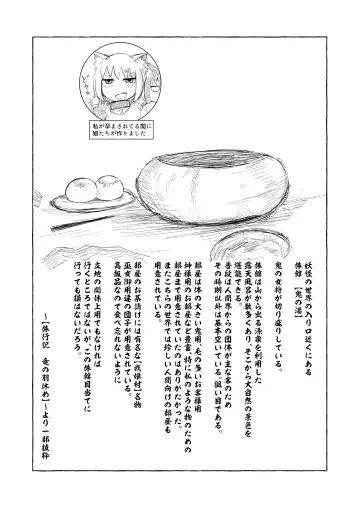 私が孕まされてる間に
娘たちが作りました
妖怪の世界の入り口近くにある
旅館【鬼の湯】
鬼の女将が切り盛りしている。
旅館は山から出る源泉を利用した
露天風呂が数多くあり、そこから大自然の景色を
堪能できる。
普段は人間界からの団体が主な客のため
その時期以外は基本空いている。狙い目である。
部屋は体の大きい鬼用、毛の多いお客様用
神様用のお部屋など豊富、特に私のような物のための
部屋まで用意されていたのはありがたかった。
またこちらの世界では珍しい人間向けの部屋も
用意されている。
部屋のお茶請けには有名な【浅保村】名物
巫女御用達の団子が用意されている。
高級品なので食べ忘れないように
立地の関係上用でもなければ
行くところではないが、この旅館目当てに
行っても損はないだろう。
～【旅行記 竜の羽休め】～より一部抜粋